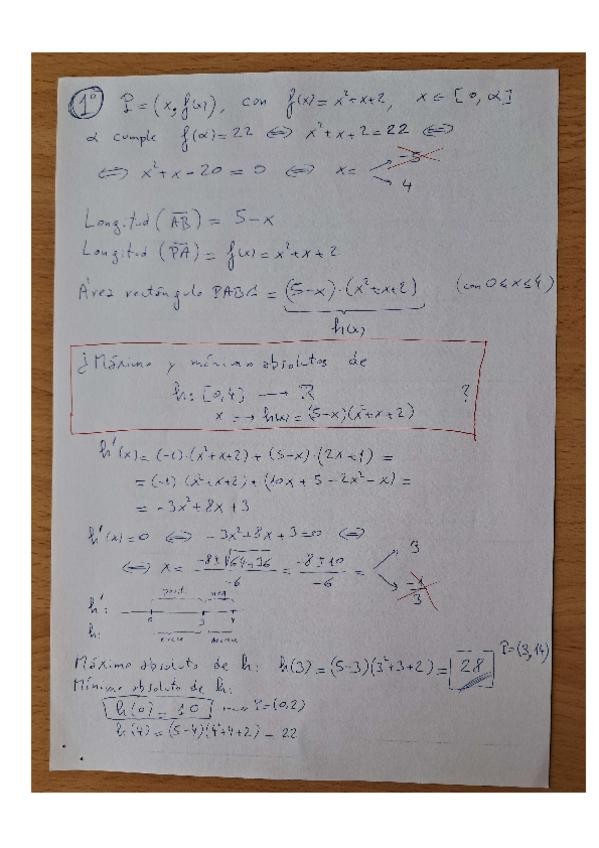 1º P = (x, f(x)), con f(x) = x²+x+2, x ∈ [0, α]
α cumple f(α) = 22 ⇔ x²+x+2 = 22 ⇔
⇔ x²+x-20 = 0 ⇔ x = -5
4
Longitud (AB) = 5-x
Longitud (PA) = f(x) = x²+x+2
Área rectángulo PABC = (5-x)·(x²+x+2) (con 0≤x≤4)
h(x)
¿Máximo y mínimo absolutos de
h: [0,4] → ℝ ?
x → h(x) = (5-x)(x²+x+2)
h'(x) = (-1)·(x²+x+2) + (5-x)·(2x+1) =
= (-1)(x²+x+2) + (10x+5-2x²-x) =
= -3x²+8x+3
h'(x)=0 ⇔ -3x²+8x+3=0 ⇔
⇔ x = (-8±√(64+36))/(-6) = (-8±10)/(-6) = 3
-1/3
posit. neg
h': 0 3 4
h:
Máximo absoluto de h: h(3) = (5-3)(3²+3+2) = 28 P=(3,14)
Mínimo absoluto de h:
h(0) = 10 P=(0,2)
h(4) = (5-4)(4²+4+2) = 22